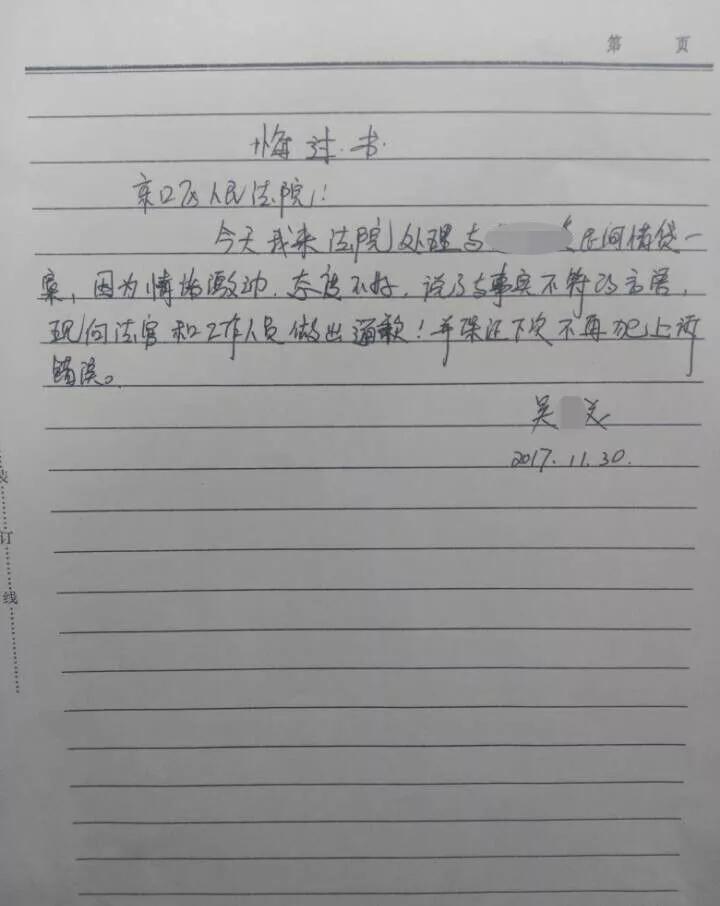 第 页
悔过书.
亲口区人民法院!
今天我来法院处理与 民间借贷一
案,因为情绪激动.态度不好,说了与事实不符的言语,
现向法官和工作人员做出道歉!并保证下次不再犯上诉
错误。
吴
2017.11.30.
装
订
线